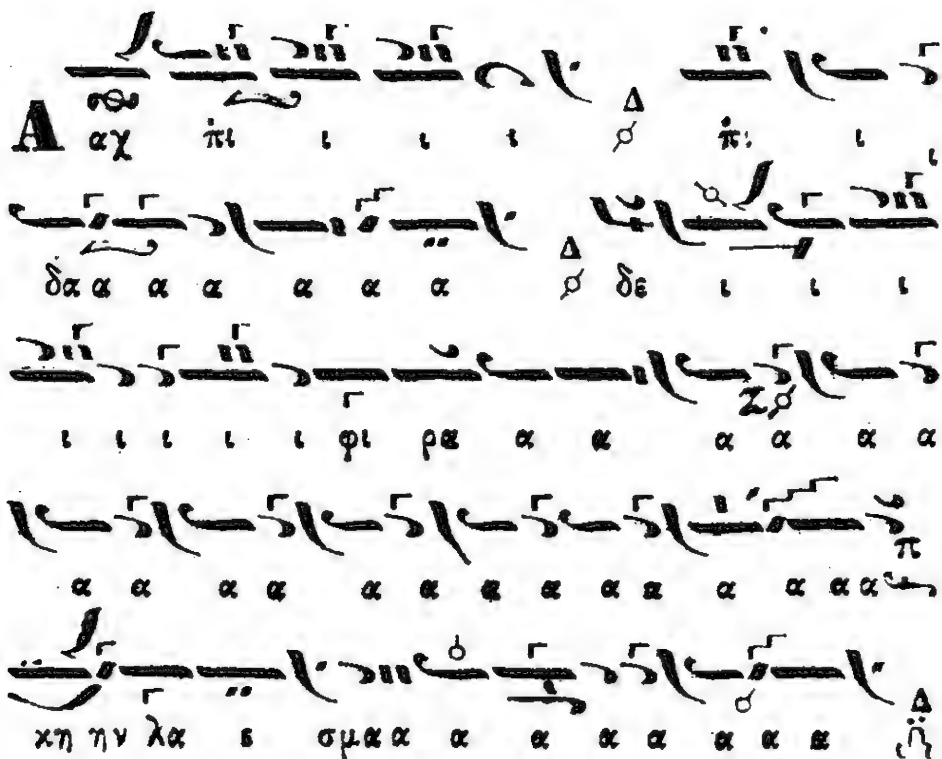 Α αχ πι ι ι ι Δ πι ι ι
δα α α α α α α Δ δε ι ι ι
ι ι ι ι ι φι ρα α α α Ζ α α α
α α α α α α α α α α α α α α π
κη ην λα σμα α α α α α α α α Δ